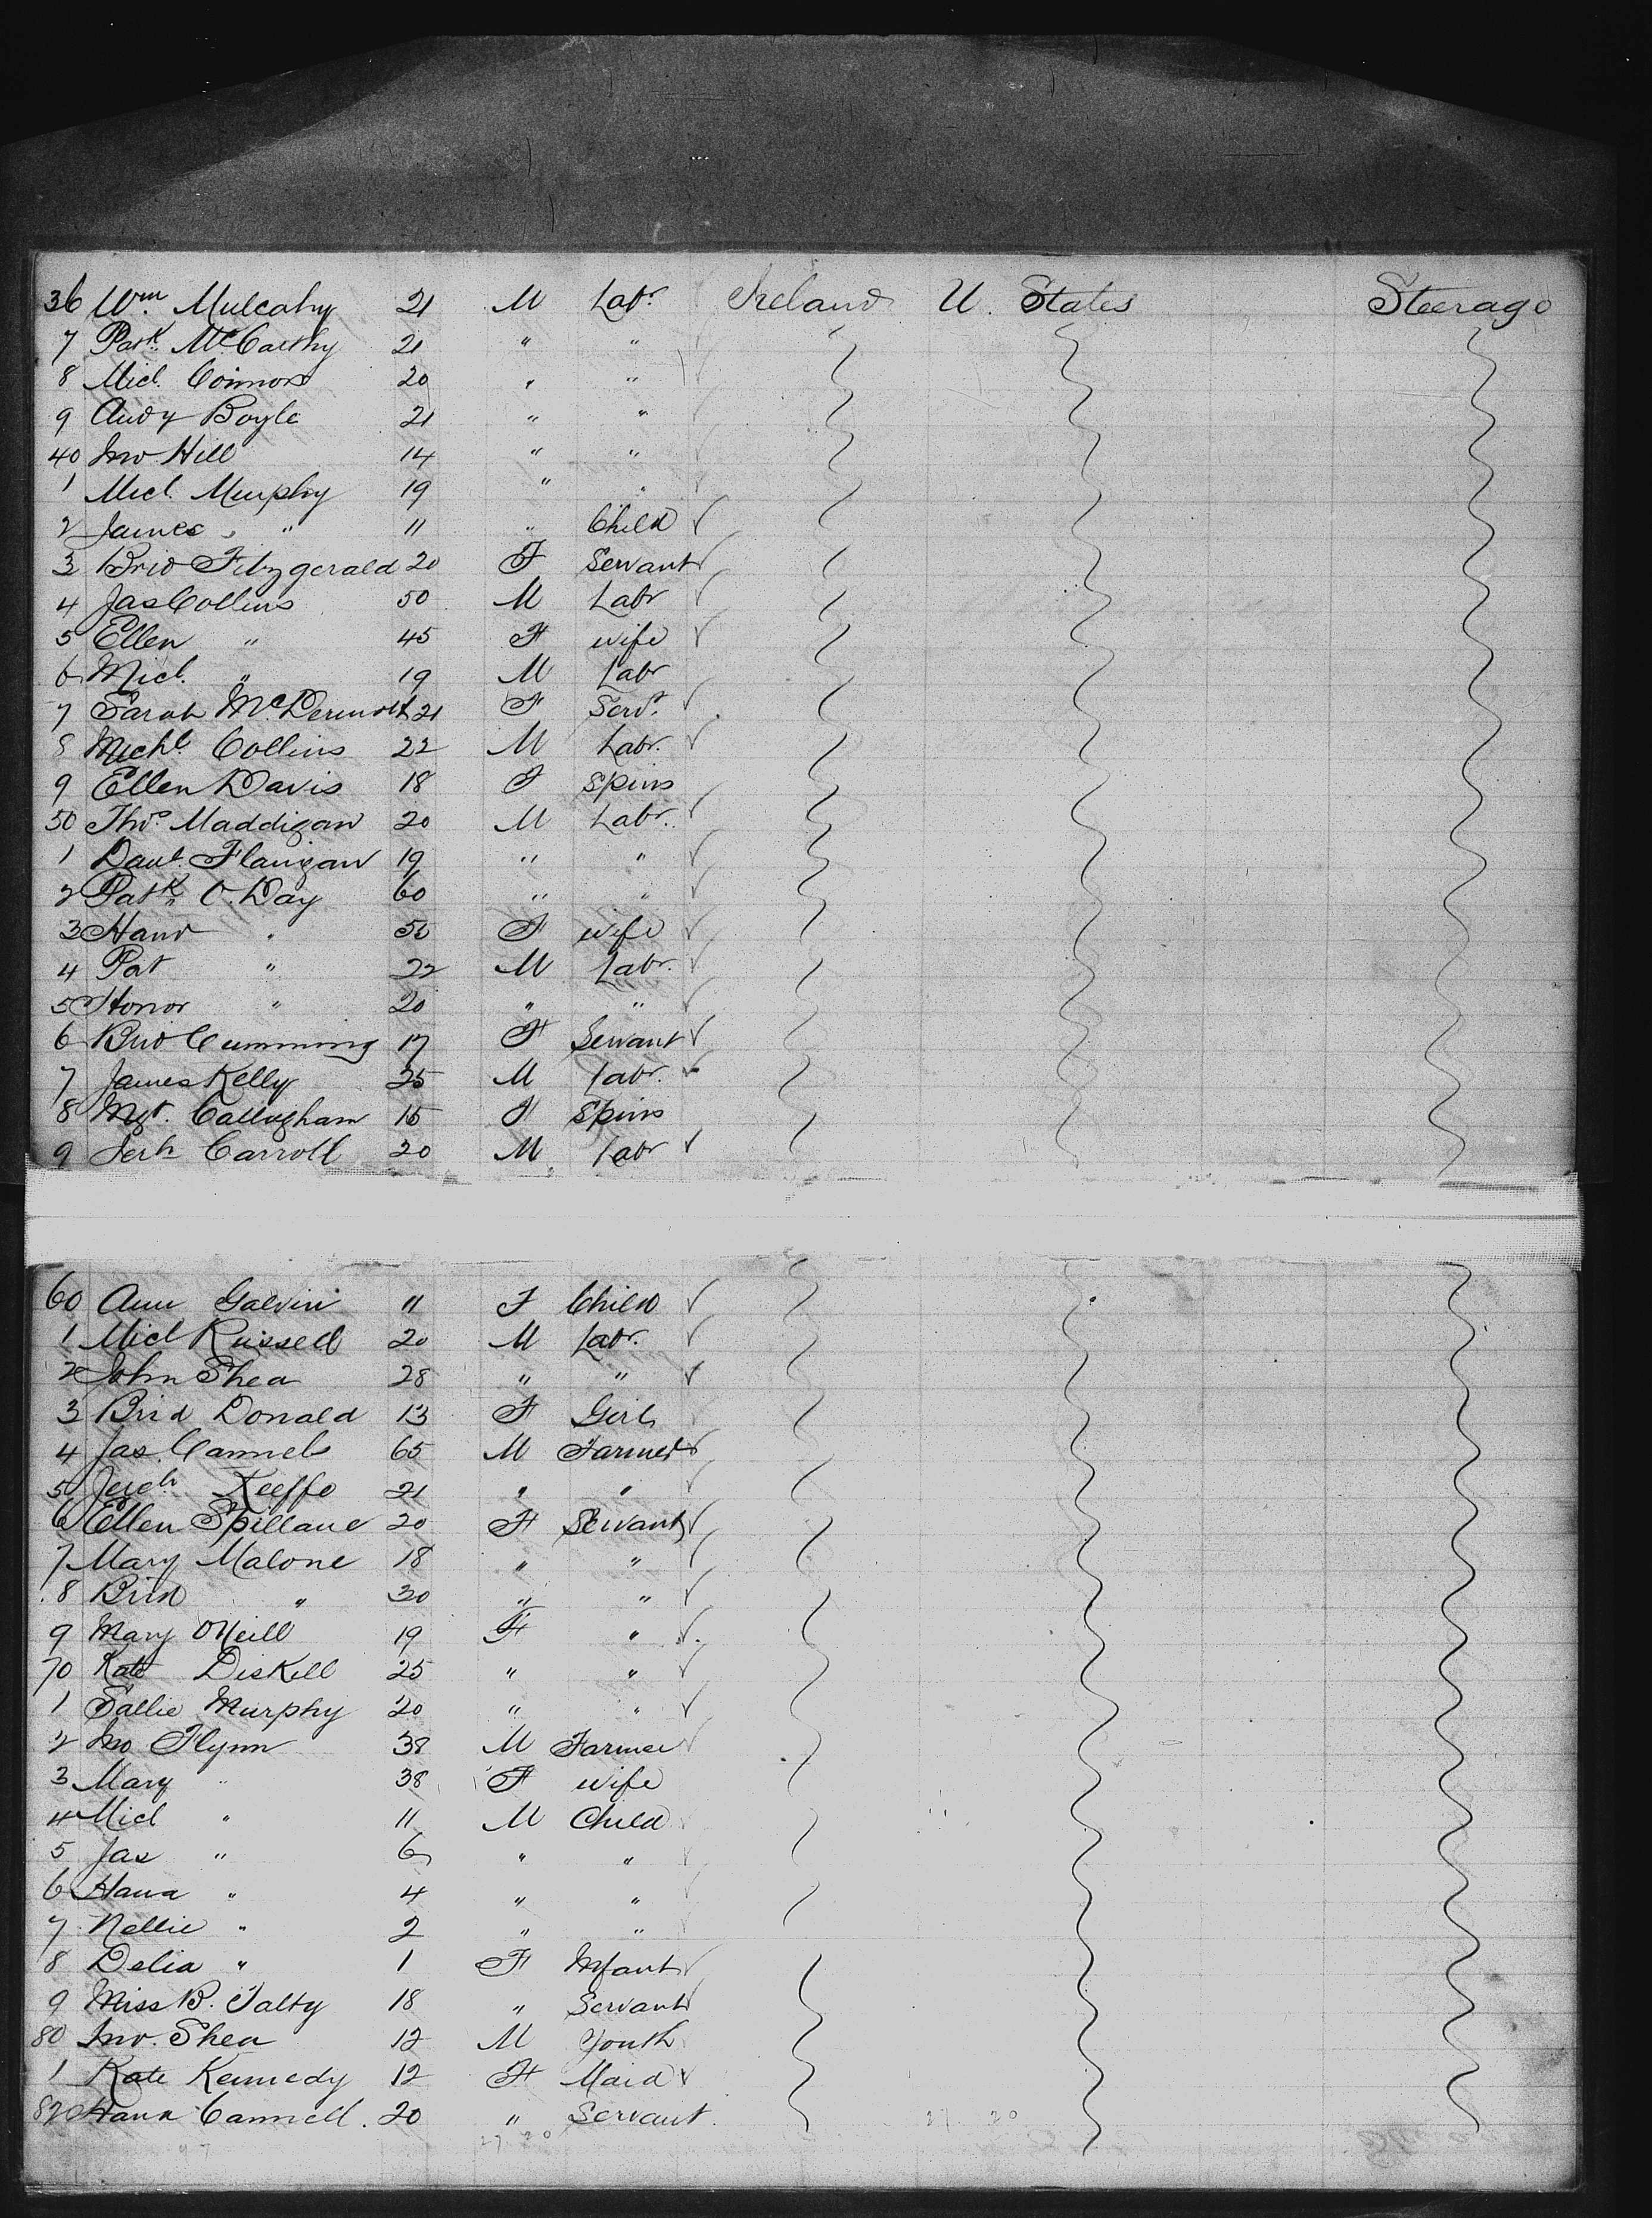 36 Wm. Mulcahy 21 M Labr. Ireland U. States Steerage
7 Patk. McCarthy 21 " "
8 Micl. Connors 20 " "
9 Andy Boyle 21 " "
40 Jno Hill 14 " "
1 Micl. Murphy 19 " "
2 James " 11 " Child
3 Brid Fitzgerald 20 F Servant
4 Jas Collins 50 M Labr
5 Ellen " 45 F wife
6 Micl. " 19 M Labr
7 Sarah McDermott 21 F Servt.
8 Michl. Collins 22 M Labr.
9 Ellen Davis 18 F Spins
50 Thos. Maddigan 20 M Labr.
1 Danl. Flanigan 19 " "
2 Patk. O. Day 60 " "
3 Hanr " F wife
4 Pat " 22 M Labr.
5 Honor " 20 " "
6 Brid Cumming 17 F Servant
7 James Kelly 25 M Labr.
8 Mgt. Callugham F Spins
9 Jerh Carroll 20 M Labr
60 Ann Galvin 11 F Child
1 Micl Russell 20 M Labr.
2 John Shea 28 " "
3 Brid Donald 13 F Girl
4 Jas. Cannel 65 M Farmer
5 Jerh Keeffe 21 " "
6 Ellen Spillane 20 F Servant
7 Mary Malone 18 " "
8 Brid " 20 " "
9 Mary ONeill 19 F "
70 Kate Diskell 25 " "
1 Sallie Murphy 20 " "
2 Jno Flynn 38 M Farmer
3 Mary " 38 F wife
4 Micl " 11 M Child
5 Jas " 6 " "
6 Hana " 4 " "
7 Nellie " 2 " "
8 Delia " 1 F Infant
9 Miss B. Talty 18 " Servant
80 Jno. Shea 12 M Youth
1 Kate Kennedy 12 F Maid
82 Hana Cannell. 20 " Servant.
27. 20 27. 20